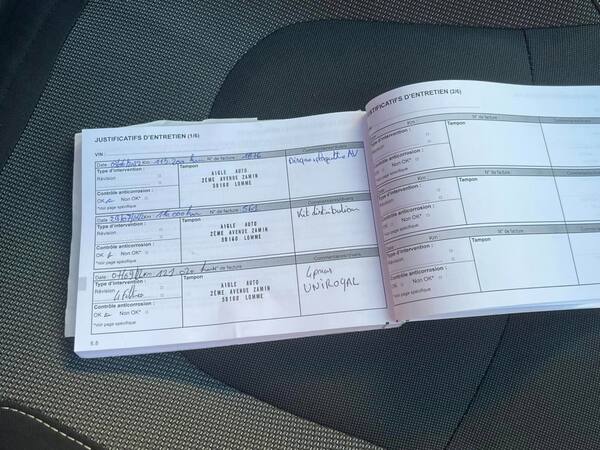 JUSTIFICATIFS D'ENTRETIEN (1/6)
VIN :
Date : Km : 115 200 N° de facture : 1876 Commentaires/divers
Type d'intervention : Tampon Disques plaquettes AV
Révision
AIGLE AUTO
2EME AVENUE ZAMIN
59160 LOMME
Contrôle anticorrosion :
OK Non OK*
*Voir page spécifique
Date : Km : 116 000 N° de facture : Commentaires/divers
Type d'intervention : Tampon Kit distribution
Révision
AIGLE AUTO
2EME AVENUE ZAMIN
59160 LOMME
Contrôle anticorrosion :
OK Non OK*
*Voir page spécifique
Date : Km : 121 020 N° de facture : Commentaires/divers
Type d'intervention : Tampon 4 pneus
Révision UNIROYAL
AIGLE AUTO
2EME AVENUE ZAMIN
59160 LOMME
Contrôle anticorrosion :
OK Non OK*
*Voir page spécifique
6.8
JUSTIFICATIFS D'ENTRETIEN (2/6)
Km : N° de facture :
Type d'intervention : Tampon
Révision
Contrôle anticorrosion :
OK Non OK*
*Voir page spécifique
N° de facture :
Type d'intervention : Tampon
Révision
Contrôle anticorrosion :
OK Non OK*
*Voir page spécifique
N° de facture :
Type d'intervention : Tampon
Révision
Contrôle anticorrosion :
OK Non OK*
*Voir page spécifique